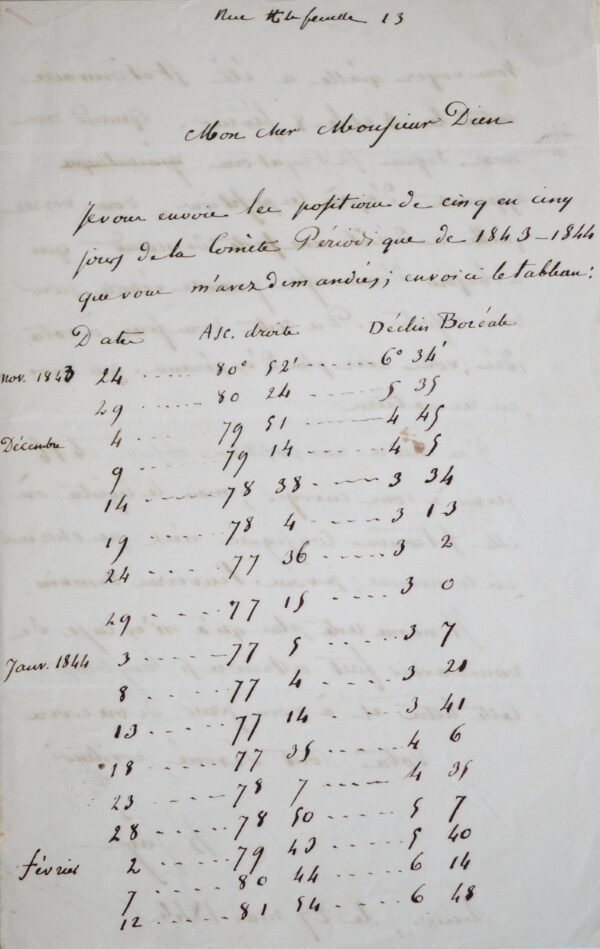 Rue Hte feuille 13
Mon cher Monsieur Dien
Je vous envoie les positions de cinq en cinq
jours de la Comète Périodique de 1843-1844
que vous m'avez demandées; en voici le tableau:
Dates Asc. droite Déclin Boréale
nov. 1843 24 ..... 80° 52' ..... 6° 34'
29 ..... 80 24 ..... 5 35
Décembre 4 ..... 79 51 ..... 4 45
9 ..... 79 14 ..... 4 5
14 ..... 78 38 ..... 3 34
19 ..... 78 4 ..... 3 13
24 ..... 77 36 ..... 3 2
29 ..... 77 15 ..... 3 0
Janv. 1844 3 ..... 77 5 ..... 3 7
8 ..... 77 4 ..... 3 21
13 ..... 77 14 ..... 3 41
18 ..... 77 35 ..... 4 6
23 ..... 78 7 ..... 4 35
28 ..... 78 50 ..... 5 7
février 2 ..... 79 43 ..... 5 40
7 ..... 80 44 ..... 6 14
12 ..... 81 54 ..... 6 48